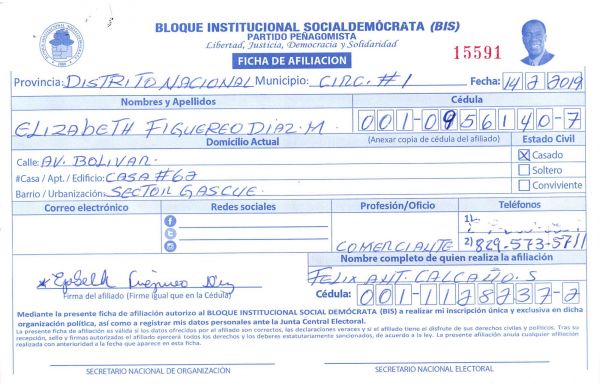 BLOQUE INSTITUCIONAL SOCIALDEMÓCRATA (BIS)
PARTIDO PEÑAGOMISTA
Libertad, Justicia, Democracia y Solidaridad
15591
FICHA DE AFILIACION
Provincia: DISTRITO NACIONAL Municipio: CIRC. #1 Fecha: 14/2/2019
Nombres y Apellidos Cédula
ELIZABETH FIGUEREO DIAZ. M. 001-0956140-7
Domicilio Actual (Anexar copia de cédula del afiliado) Estado Civil
Calle: AV. BOLIVAR. X Casado
#Casa / Apt. / Edificio: CASA #62 Soltero
Barrio / Urbanización: SECTOR GASCUE. Conviviente
Correo electrónico Redes sociales Profesión/Oficio Teléfonos
1)
COMERCIANTE 2) 829-573-5711
Nombre completo de quien realiza la afiliación
FELIX ANT. CALCAÑO. S
Firma del afiliado (Firme igual que en la Cédula) Cédula: 001-1178737-2
Mediante la presente ficha de afiliación autorizo al BLOQUE INSTITUCIONAL SOCIAL DEMÓCRATA (BIS) a realizar mi inscripción única y exclusiva en dicha
organización política, así como a registrar mis datos personales ante la Junta Central Electoral.
La presente ficha de afiliación es válida si los datos ofrecidos por el afiliado son correctos, las declaraciones veraces y si el afiliado tiene el disfrute de sus derechos civiles y políticos. Tras su
recepción, sello y firmas autorizadas el afiliado ejercerá todos los derechos y los deberes estatutariamente sancionados, de acuerdo a la ley. La presente afiliación anula cualquier afiliación
realizada con anterioridad a la fecha que aparece en esta ficha.
SECRETARIO NACIONAL DE ORGANIZACIÓN SECRETARIO NACIONAL ELECTORAL